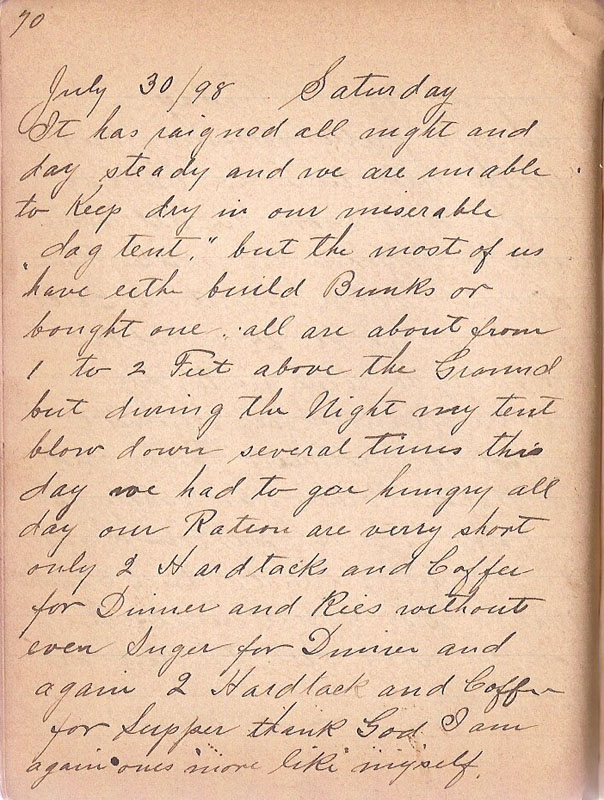 70
July 30/98 Saturday
It has raigned all night and
day steady and we are unable
to Keep dry in our miserable
"dog tent," but the most of us
have eithe build Bunks or
bought one, all are about from
1 to 2 Feet above the Ground
but during the Night my tent
blow down several times this
day we had to goe hungry all
day our Ration are verry short
only 2 Hardtacks and Coffee
for Dinner and Ries without
even Suger for Dinner and
again 2 Hardtack and Coffee
for Supper thank God I am
again ones more like myself.